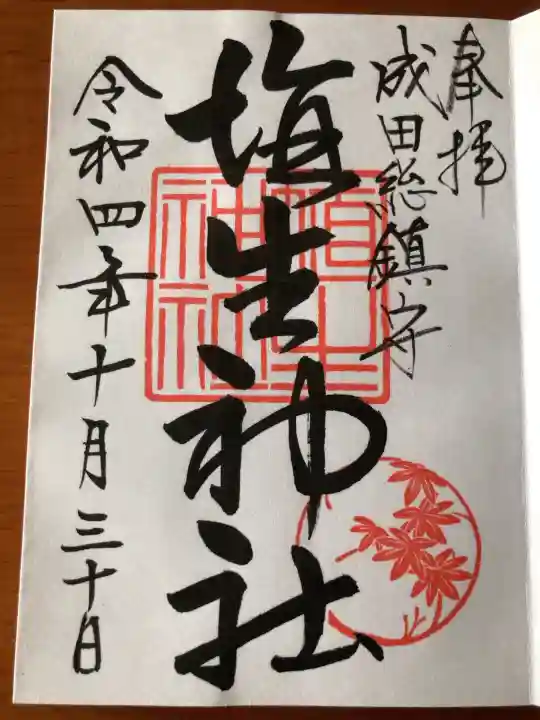 奉拝
成田総鎮守
埴生神社
埴生
神社
令和四年十月三十日